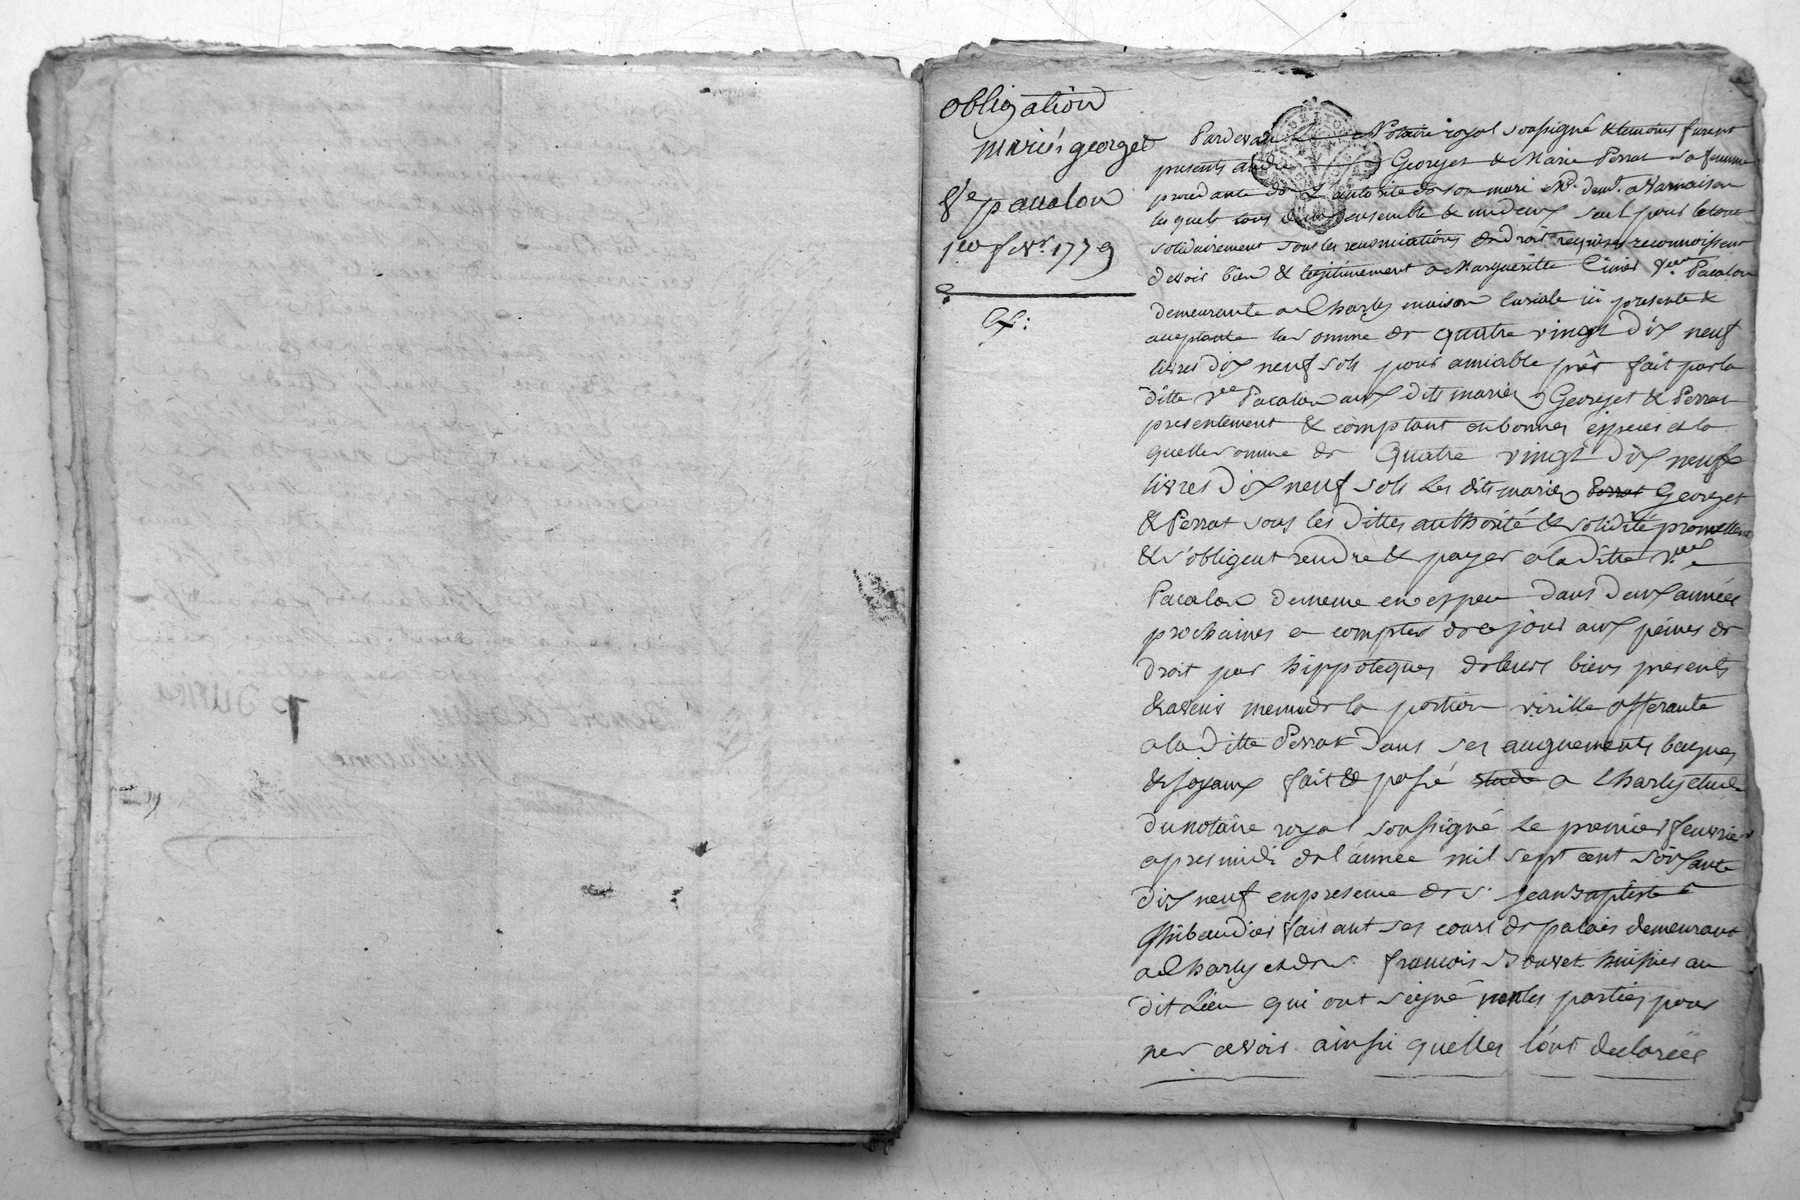 obligation
mariés georget
Ve pacalon
1er fevr 1779
Pardevant Notaire royal soussigné & temoins furent
presents andre Georget & Marie Perrat sa femme
procedante de l'autorité de son mari dem.t a Varnaison
lesquels tous deux ensemble & un deux seul pour le tout
solidairement sous les renonciations de droit requises reconnoissent
devoir bien & legitimement a Margueritte veuve Pacalon
demeurante a Charly maison curiale ici presente &
acceptante la somme de quatre vingt dix neuf
livres dix neuf sols pour amiable prêt fait par la
ditte vee Pacalon aux dits mariés Georget & Perrat
presentement & comptant en bonnes especes et la
quelle somme de quatre vingt dix neuf
livres dix neuf sols les dits mariés Perrat Georget
& Perrat sous les dittes authorité & solidité promettent
& s'obligent rendre & payer a la ditte vee
Pacalon de meme en espece dans deux années
prochaines a compter de ce jour aux peines de
droit par hippoteques de leurs biens presents
& avenir meme de la portion virille afferante
a la ditte Perrat dans ses augments bagues
& joyaux fait & passé etude a Charly etude
du notaire royal soussigné le premier feuvrier
apres midi de l'année mil sept cent soixante
dix neuf en presence de s. jean baptiste
Thibaudier faisant ses cours de palais demeurant
a Charly et de s. francois Bouvet huissier au
dit lieu qui ont signé non les parties pour
ne savoir ainsi quelles l'ont declarées